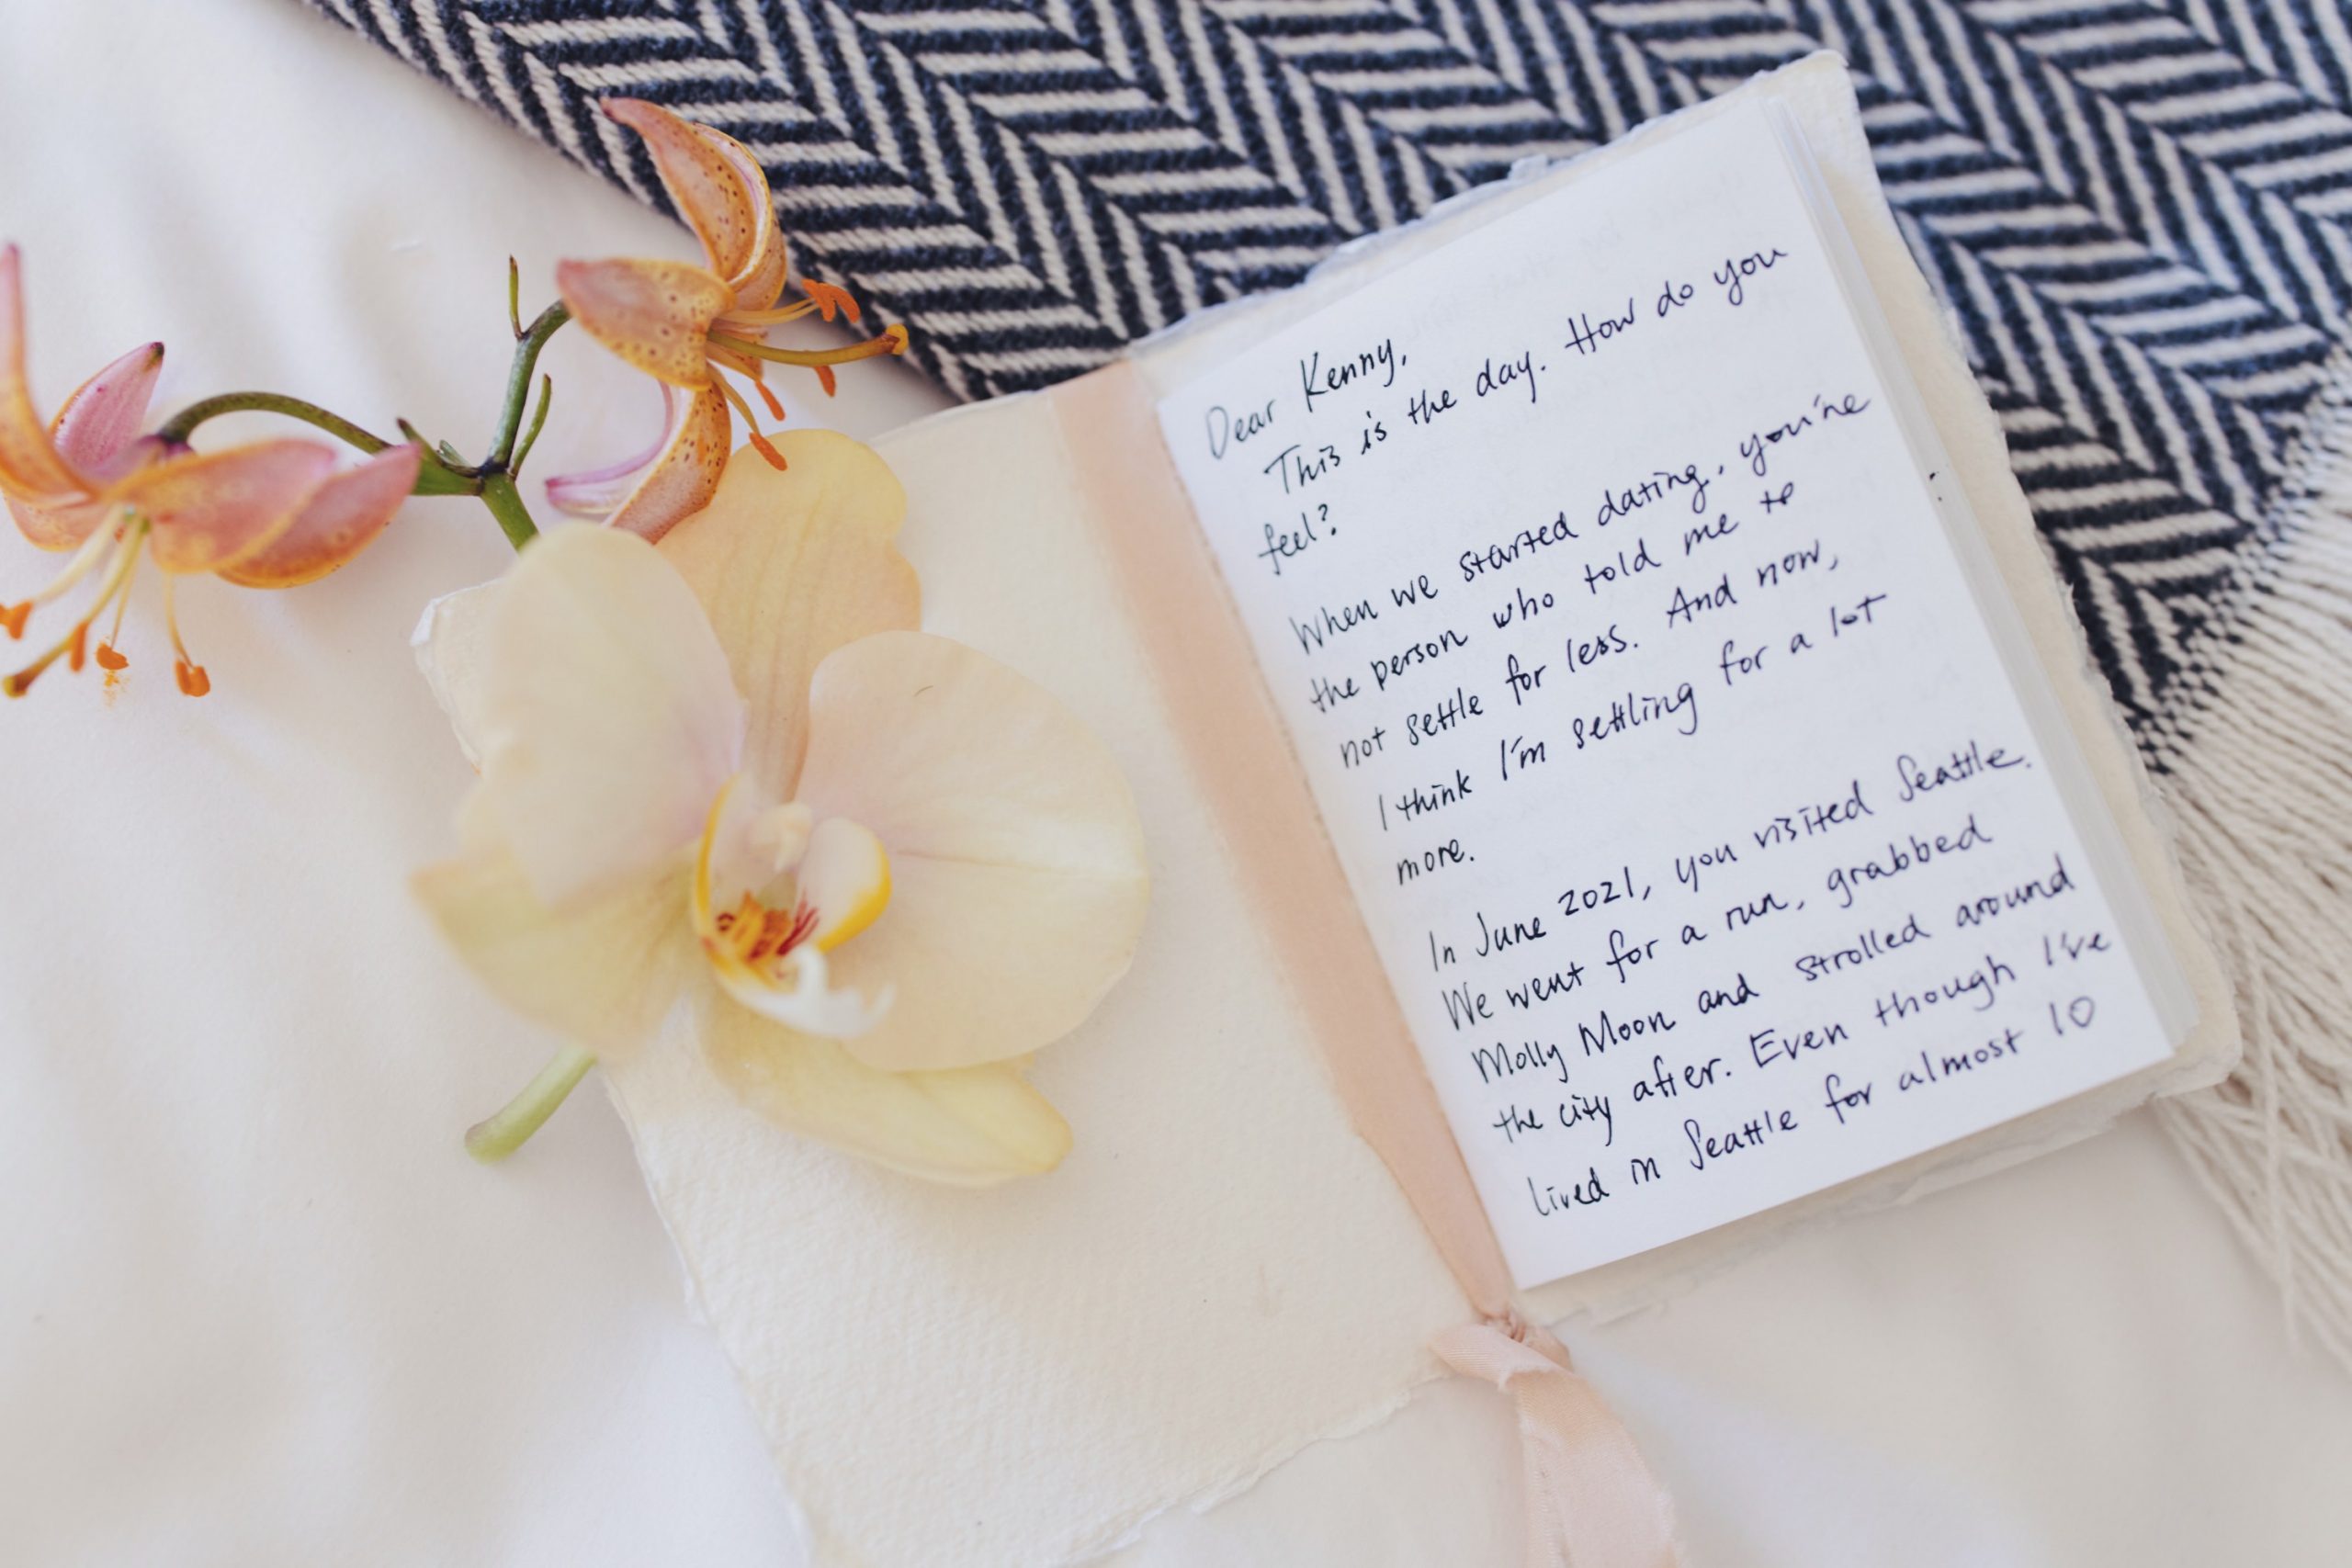 Dear Kenny,
This is the day. How do you
feel?
When we started dating, you're
the person who told me to
not settle for less. And now,
I think I'm settling for a lot
more.
In June 2021, you visited Seattle.
We went for a run, grabbed
Molly Moon and strolled around
the city after. Even though I've
lived in Seattle for almost 10